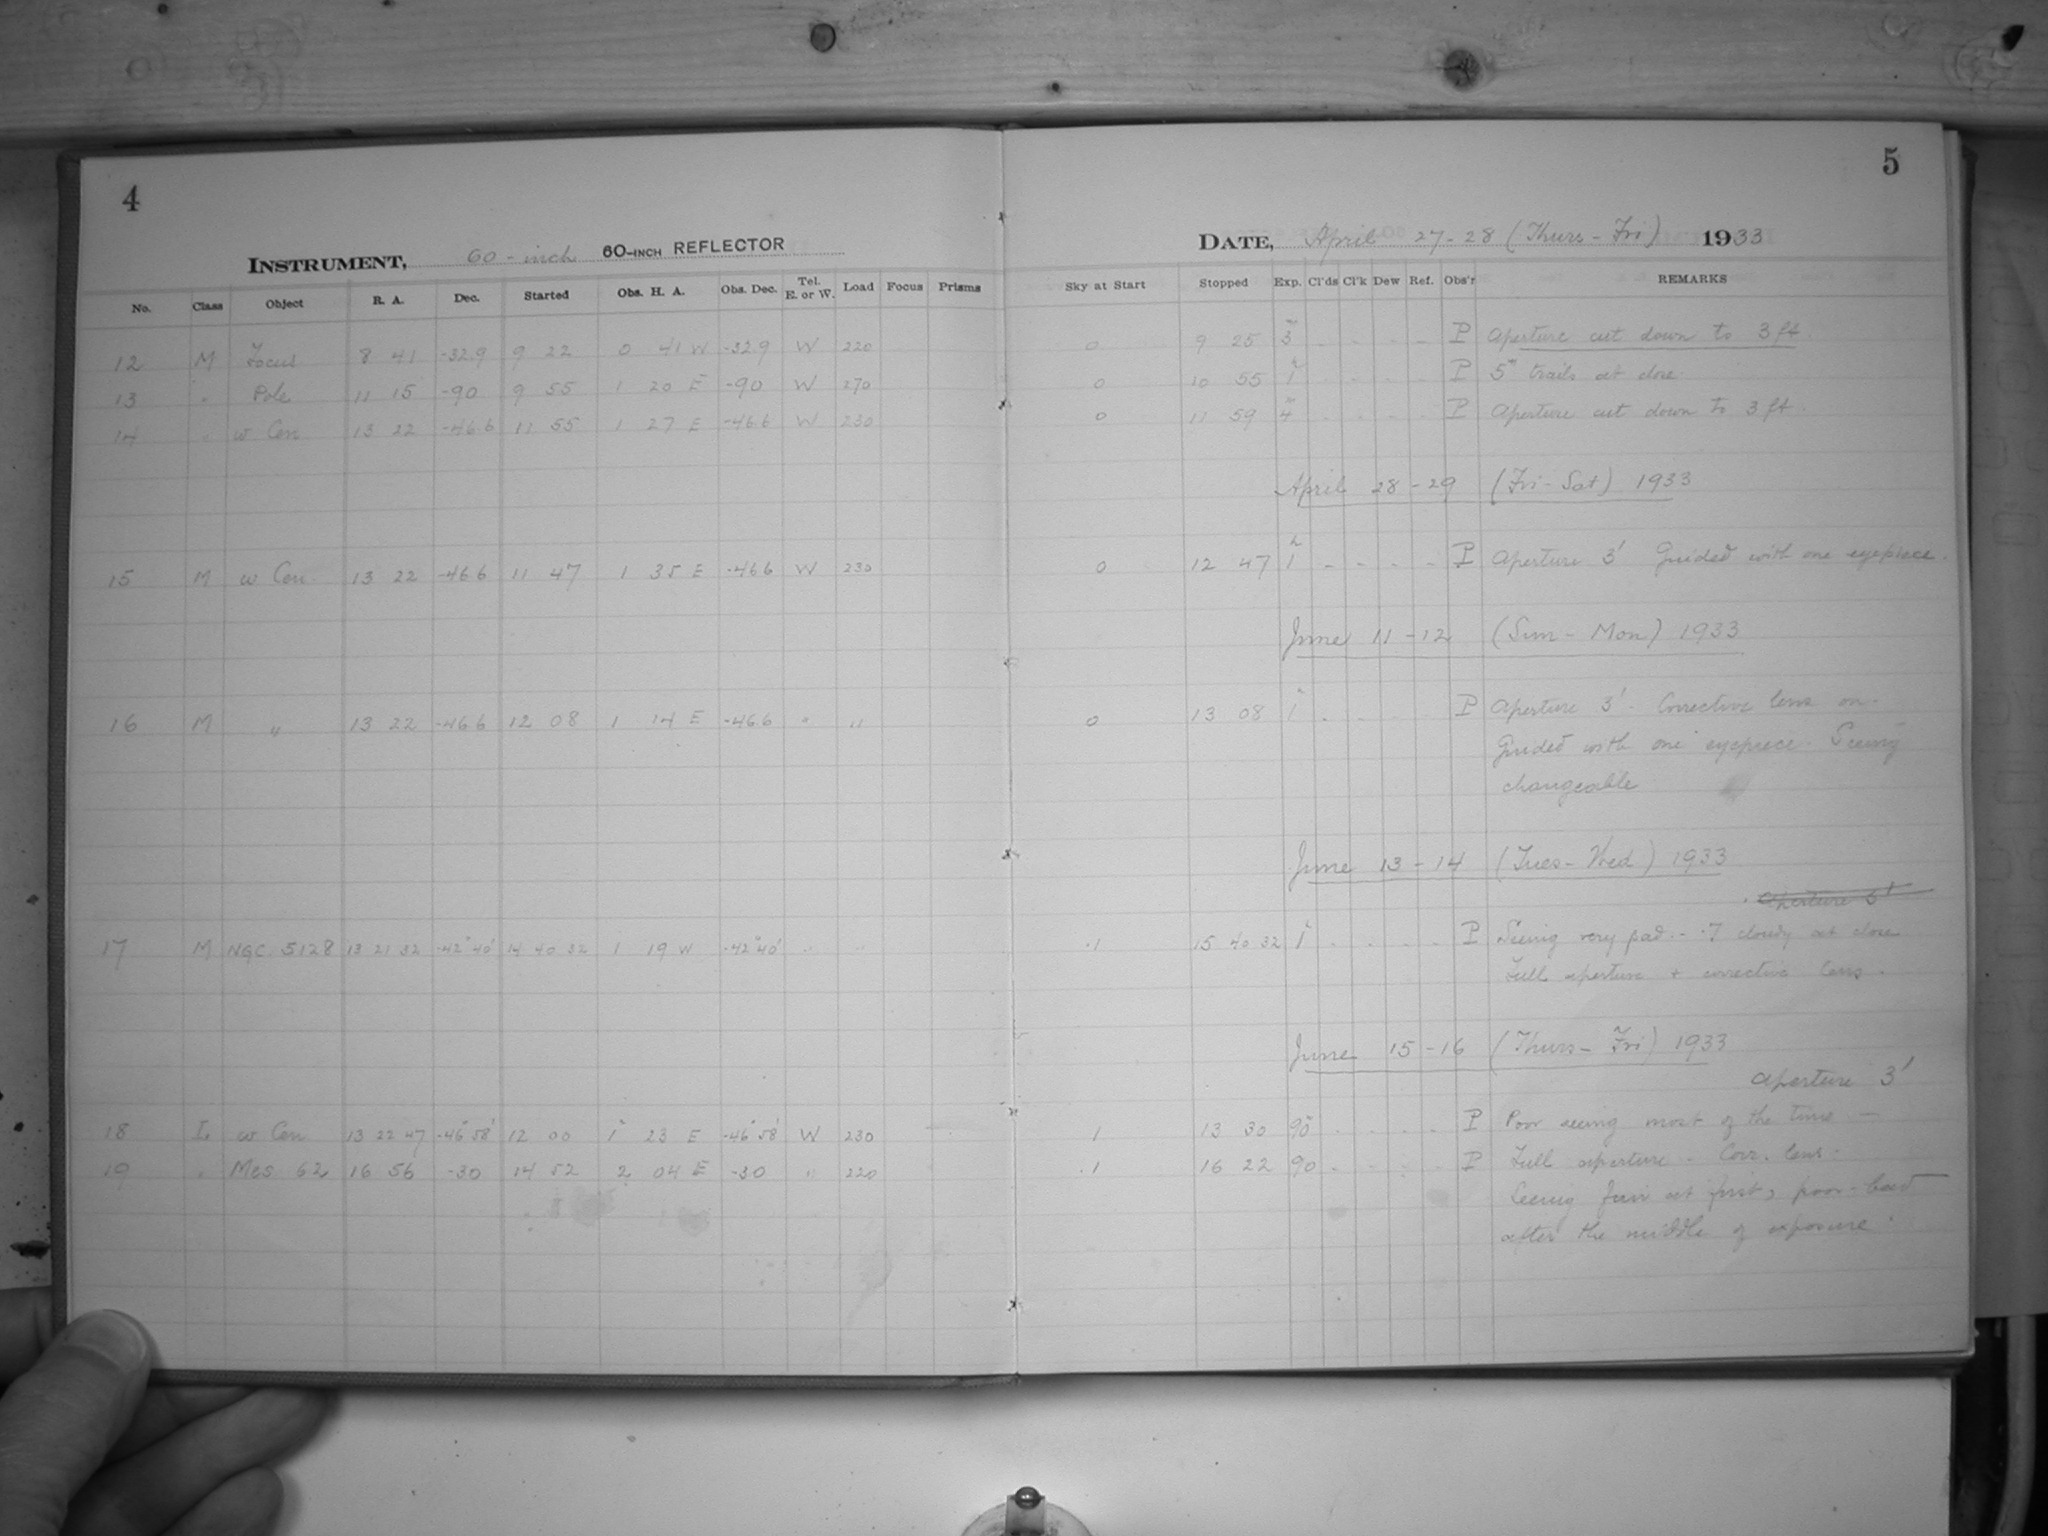 4
INSTRUMENT, 60-inch 60-INCH REFLECTOR
No. Class Object R. A. Dec. Started Obs. H. A. Obs. Dec. Tel. E. or W. Load Focus Prisms
12 M Focus 8 41 -32.9 9 22 0 41 W -32.9 W 220
13 " Pole 11 15 -90 9 55 1 20 E -90 W 270
14 " w Cen 13 22 -46.6 11 55 1 27 E -46.6 W 230
15 M w Cen 13 22 -46.6 11 47 1 35 E -46.6 W 230
16 M " 13 22 -46.6 12 08 1 14 E -46.6 " "
17 M NGC 5128 13 21 32 -42° 40' 14 40 32 1 19 W -42° 40' " "
18 I. w Cen 13 22 47 -46° 58' 12 00 1h 23 E -46° 58' W 230
19 " Mes 62 16 56 -30 14 52 2 04 E -30 " 220
5
DATE, April 27-28 (Thurs-Fri) 1933
Sky at Start Stopped Exp. Cl'ds Cl'k Dew Ref. Obs'r REMARKS
0 9 25 3m - - - - P Aperture cut down to 3 ft.
0 10 55 1h - - - - P 5m trails at close.
0 11 59 4m - - - - P Aperture cut down to 3 ft.
April 28-29 (Fri-Sat) 1933
0 12 47 1h - - - - P Aperture 3' Guided with one eyepiece.
June 11-12 (Sun-Mon) 1933
0 13 08 1h - - - - P Aperture 3'. Corrective lens on.
Guided with one eyepiece. Seeing
changeable
June 13-14 (Tues-Wed) 1933
Aperture 3'
.1 15 40 32 1h - - - - P Seeing very bad - .7 cloudy at close
Full aperture + corrective lens.
June 15-16 (Thurs-Fri) 1933
Aperture 3'
1 13 30 90m - - - - P Poor seeing most of the time —
.1 16 22 90 - - - - P Full aperture - Corr. lens.
Seeing fair at first, poor-bad
after the middle of exposure.